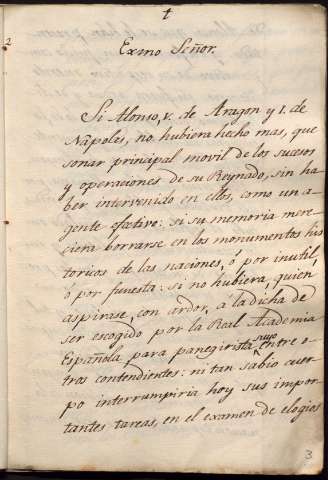 †
2
Exmo Señor.
Si Alonso, v. de Aragon y 1. de
Nápoles, no hubiera hecho mas, que
sonar principal movil de los sucesos
y operaciones de su Reynado, sin ha
ber intervenido en ellos, como un a-
gente efectivo: si su memoria mere-
ciera borrarse en los monumentos his
toricos de las naciones, ó por inutil,
ó por funesta: si no hubiera, quien
aspirase, con ardor, a la dicha de
ser escogido por la Real Academia
Española para panegirista suyo entre o-
tros contendientes: ni tan sabio cuer-
po interrumpiria hoy sus impor
tantes tareas, en el examen de elogios
3